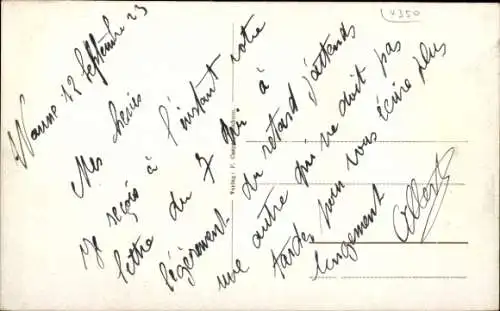 4350
Wanne 12 Septembre 23
Mes chéries
Je reçois à l'instant votre
lettre du 7 qui a
légèrement du retard j'attends
une autre qui ne doit pas
tarder pour vous écrire plus
longuement
Albert
Verlag: F.